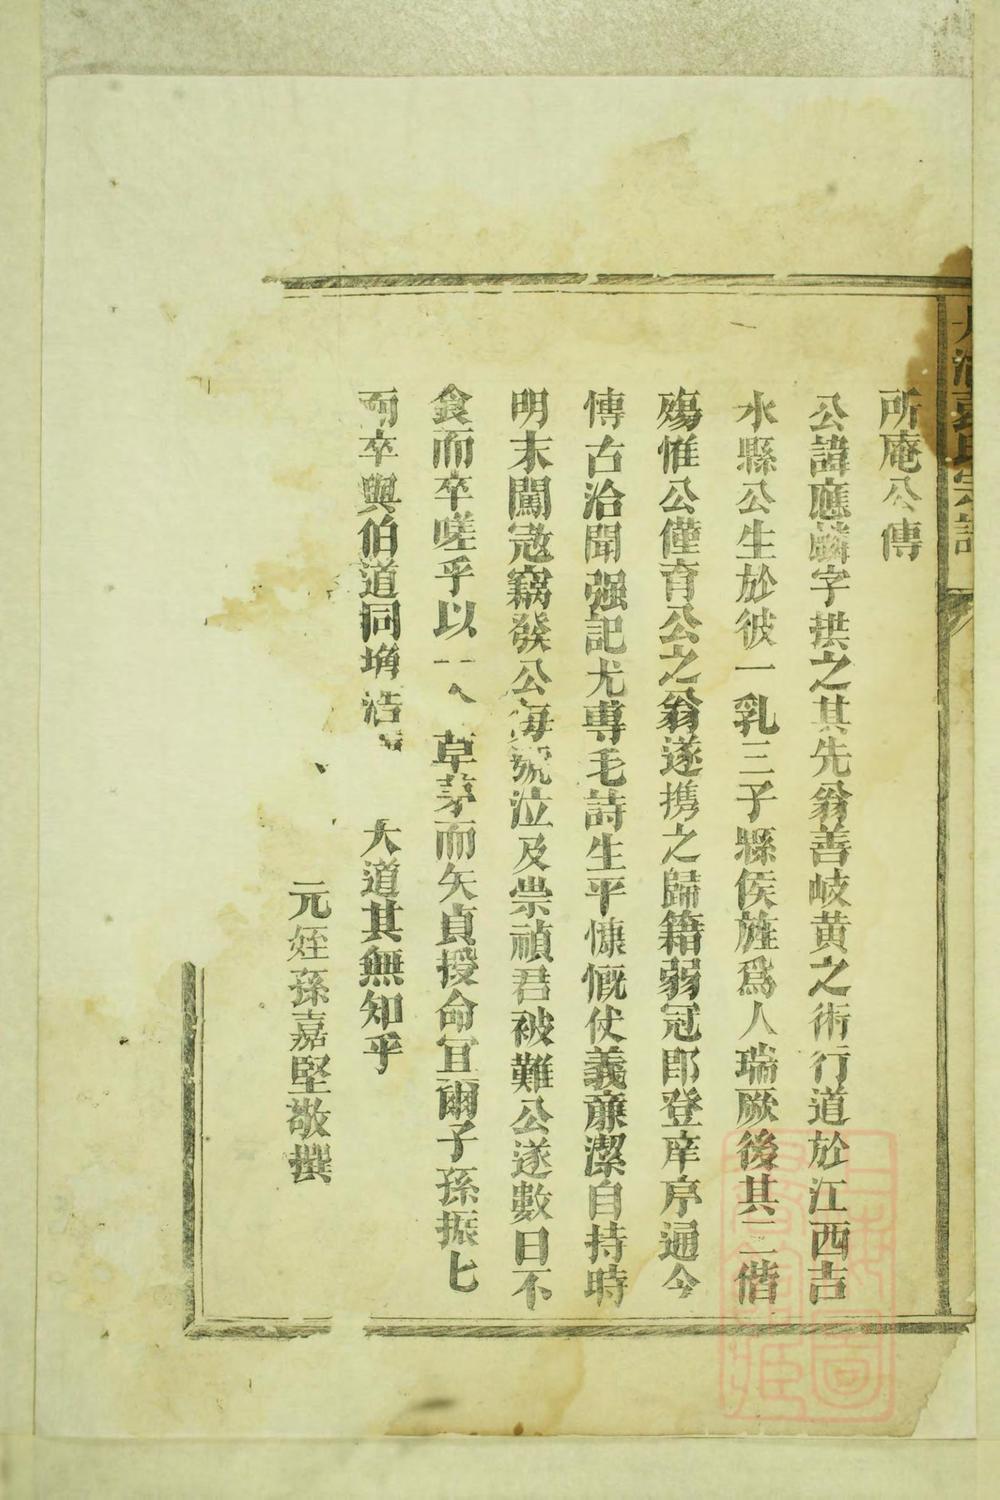 氏宗譜
所庵公傳
公諱應麟字拱之其先翁善岐黃之術行道於江西吉
水縣公生於彼一乳三子縣侯旌爲人瑞厥後其二偕
殤惟公僅育公之翁遂携之歸籍弱冠即登庠序通今
愽古洽聞强記尤專毛詩生平慷慨仗義亷潔自持時
明末闖宼竊發公每號泣及崇禎君被難公遂數日不
食而卒嗟乎以一 草茅而矢貞授命宜爾子孫振七
卒與伯道同 浩 大道其無知乎
元姪孫嘉堅敬撰